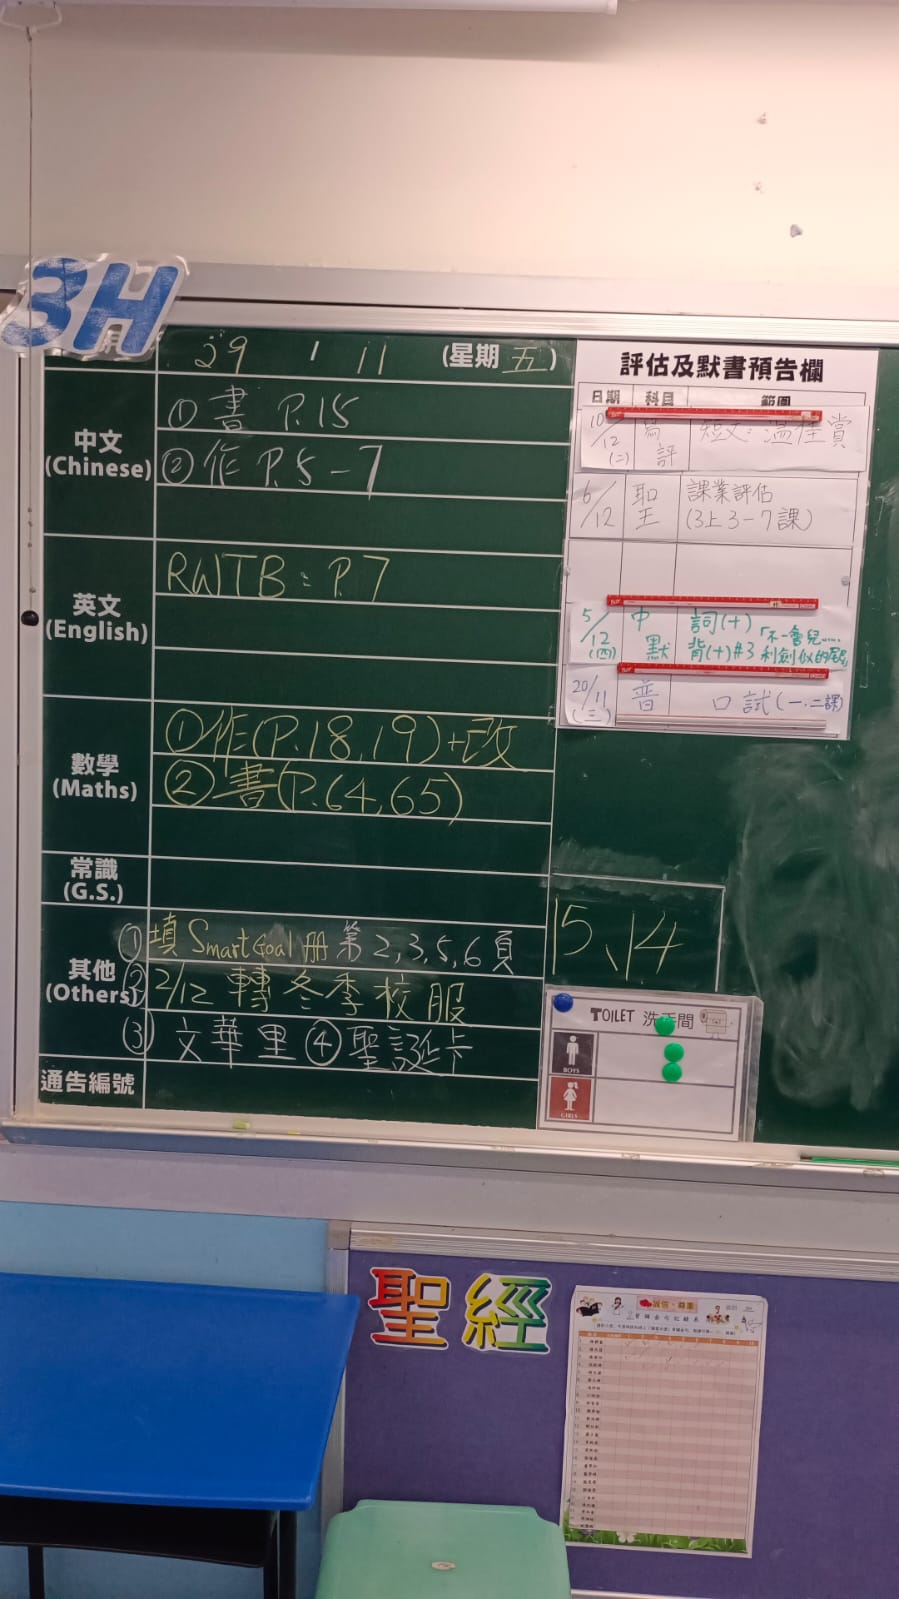 3H
29 / 11 (星期 五)
中文
(Chinese)
① 書 P.15
② 作 P.5-7
英文
(English)
RWTB: P.7
數學
(Maths)
① 作(P.18,19)+改
② 書(P.64,65)
常識
(G.S.)
其他
(Others)
① 填 Smart Goal 冊 第2,3,5,6頁
② 2/12 轉冬季校服
③ 文華里 ④ 聖誕卡
通告編號
評估及默書預告欄
日期 科目 範圍
10/12 (二) 寫評 短文:溫程賞
6/12 聖 課業評估
(3上 3-7課)
5/12 (四) 中默 詞(十)
背(十)#3「不一會兒……
利劍似的尾」
20/11 (三) 普 口試(一、二課)
15、14
TOILET 洗手間
BOYS
GIRLS
聖經
誠信、尊重